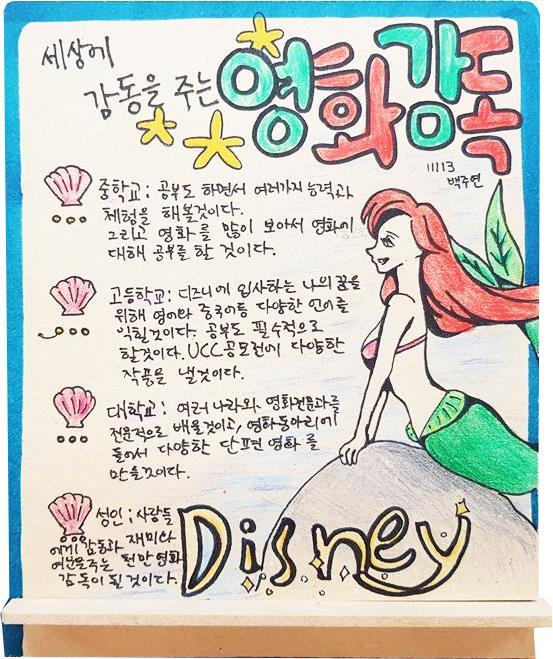 세상에
감동을 주는 영화감독
11113
백주연
중학교; 공부도 하면서 여러가지 능력과
체험을 해볼것이다.
그리고 영화를 많이 보아서 영화에
대해 공부를 할 것이다.
고등학교; 디즈니에 입사하는 나의 꿈을
위해 영어와 중국어등 다양한 언어를
익힐것이다. 공부도 필수적으로
할것이다. UCC공모전에 다양한
작품을 낼것이다.
대학교; 여러 나라와 영화전공과를
전문적으로 배울것이고, 영화동아리에
들어서 다양한 단편 영화를
만들것이다.
성인; 사람들
에게 감동과 재미와
주는 천만 영화
감독이 될 것이다.
Disney